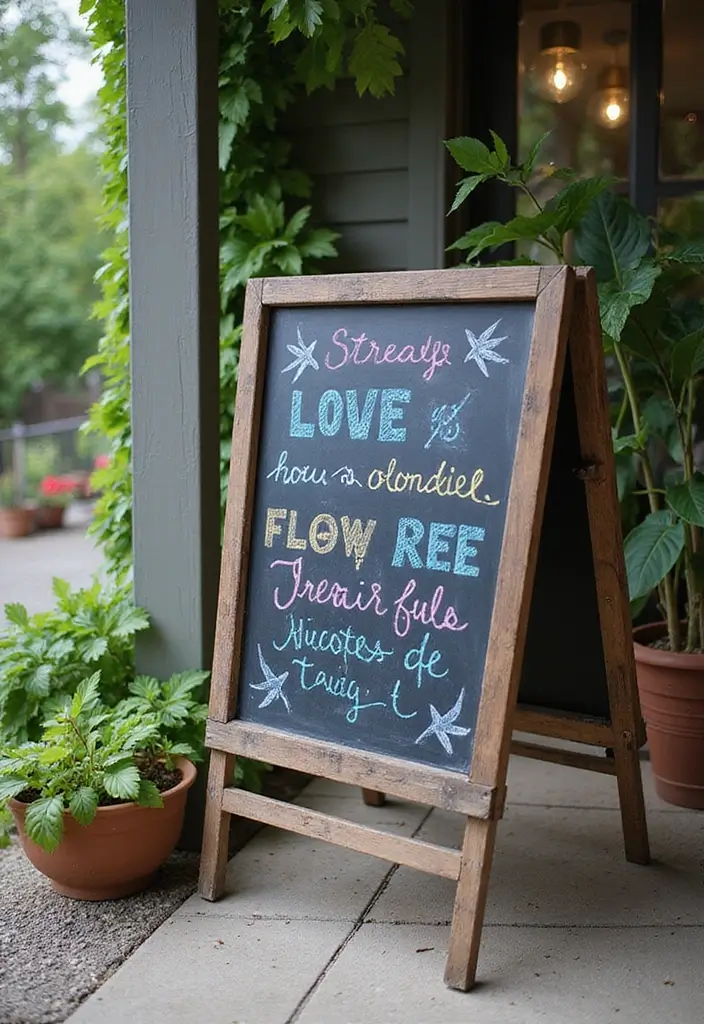 Streaẏfe
LOVE
how olondiel.
FLOW REE
Jreair fuls
Nucotes de
taug t